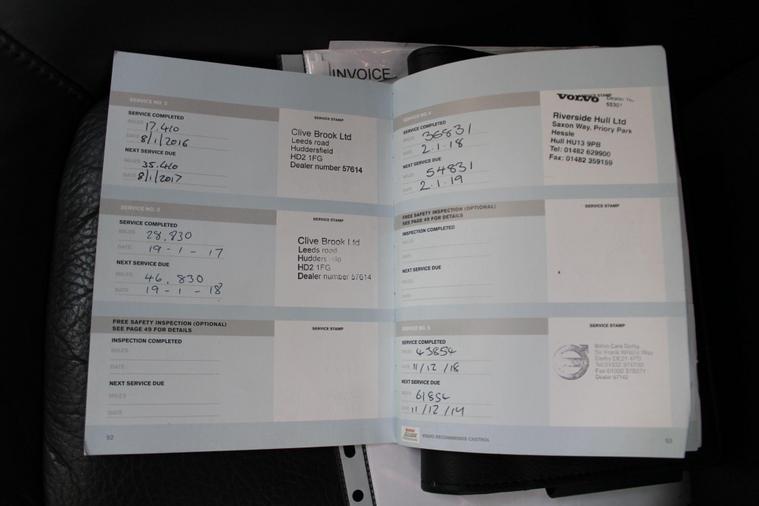 INVOICE
SERVICE NO. 2
SERVICE COMPLETED
MILES 17,410
DATE 8/1/2016
NEXT SERVICE DUE
MILES 35.410
DATE 8/1/2017
SERVICE STAMP
Clive Brook Ltd
Leeds road
Huddersfield
HD2 1FG
Dealer number 57614
SERVICE NO. 3
SERVICE COMPLETED
MILES 28,830
DATE 19-1-17
NEXT SERVICE DUE
MILES 46,830
DATE 19-1-18
SERVICE STAMP
Clive Brook Ltd
Leeds road
HD2 1FG
Dealer number 57614
FREE SAFETY INSPECTION (OPTIONAL)
SEE PAGE 49 FOR DETAILS
INSPECTION COMPLETED
MILES
DATE
NEXT SERVICE DUE
MILES
DATE
SERVICE STAMP
52
SERVICE NO. 4
SERVICE COMPLETED
MILES 36831
DATE 2.1.18
NEXT SERVICE DUE
MILES 54831
DATE 2.1.19
SERVICE STAMP
VOLVO
Riverside Hull Ltd
Saxon Way, Priory Park
Hessle
Hull HU13 9PB
Tel: 01482 629900
Fax: 01482 359159
FREE SAFETY INSPECTION (OPTIONAL)
SEE PAGE 49 FOR DETAILS
INSPECTION COMPLETED
MILES
DATE
NEXT SERVICE DUE
MILES
DATE
SERVICE STAMP
SERVICE NO. 5
SERVICE COMPLETED
MILES 43854
DATE 11/12/18
NEXT SERVICE DUE
MILES 61854
DATE 11/12/19
SERVICE STAMP
Volvo Cars Derby
VOLVO RECOMMENDS CASTROL
53